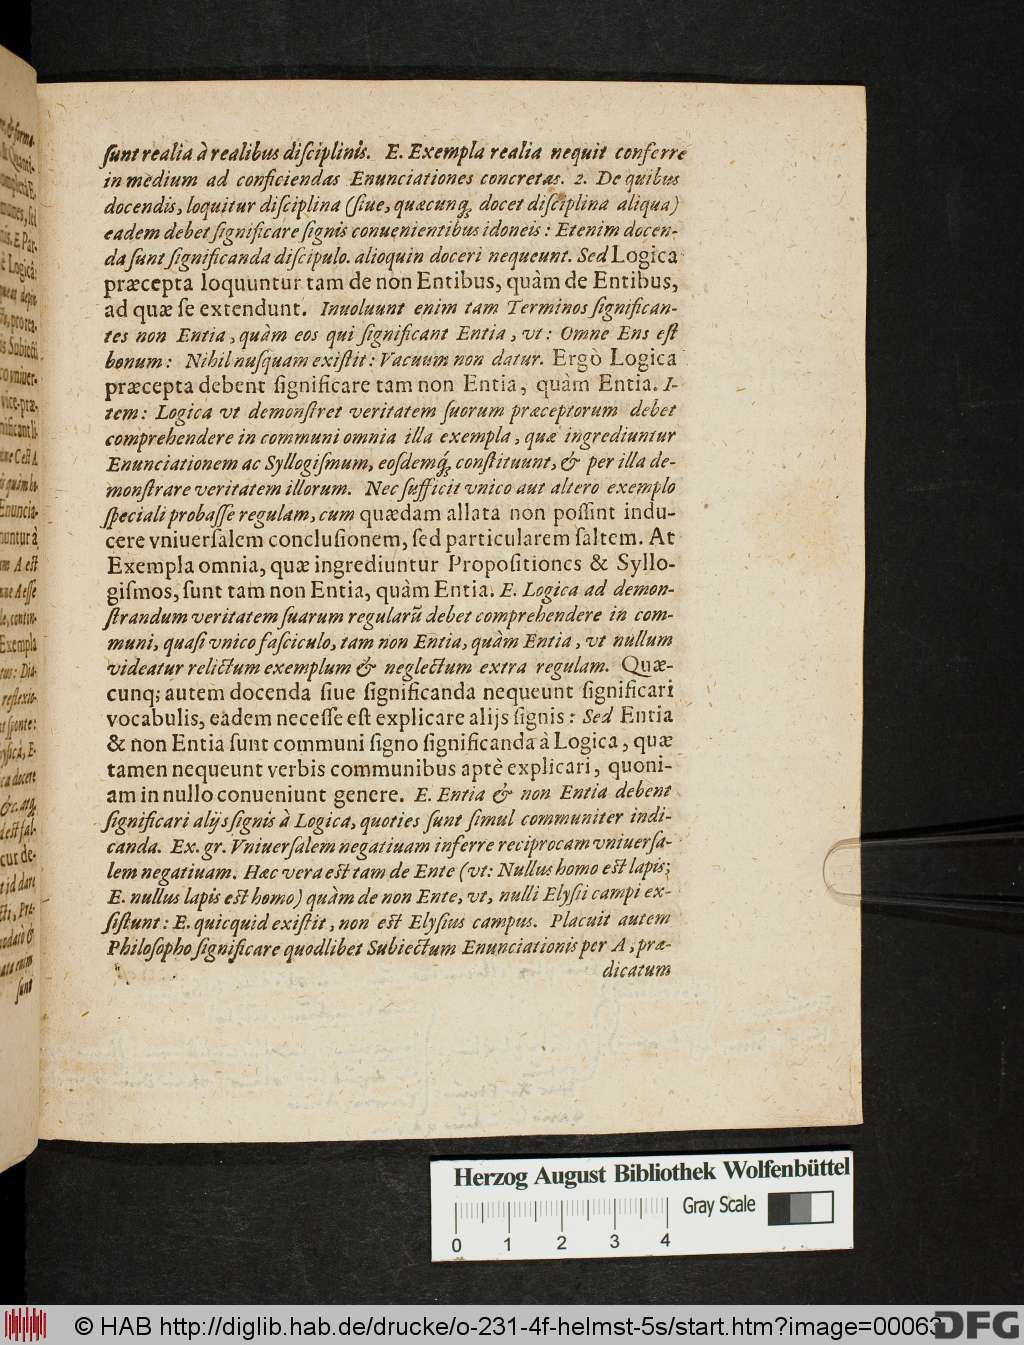 ſunt realia à realibus diſciplinis. E. Exempla realia nequit conferre
in medium ad conficiendas Enunciationes concretas. 2. De quibus
docendis, loquitur diſciplina (ſiue, quæcunq; docet diſciplina aliqua)
eadem debet ſignificare ſignis conuenientibus idoneis: Etenim docen-
da ſunt ſignificanda diſcipulo. alioquin doceri nequeunt. Sed Logica
præcepta loquuntur tam de non Entibus, quàm de Entibus,
ad quæ ſe extendunt. Inuoluunt enim tam Terminos ſignifican-
tes non Entia, quàm eos qui ſignificant Entia, vt: Omne Ens eſt
bonum: Nihil nuſquam exiſtit: Vacuum non datur. Ergò Logica
præcepta debent ſignificare tam non Entia, quàm Entia. I-
tem: Logica vt demonſtret veritatem ſuorum præceptorum debet
comprehendere in communi omnia illa exempla, quæ ingrediuntur
Enunciationem ac Syllogiſmum, eoſdemq; conſtituunt, & per illa de-
monſtrare veritatem illorum. Nec ſufficit vnico aut altero exemplo
ſpeciali probaſſe regulam, cum quædam allata non poſſint indu-
cere vniuerſalem concluſionem, ſed particularem ſaltem. At
Exempla omnia, quæ ingrediuntur Propoſitiones & Syllo-
giſmos, ſunt tam non Entia, quàm Entia. E. Logica ad demon-
ſtrandum veritatem ſuarum regularũ debet comprehendere in com-
muni, quaſi vnico faſciculo, tam non Entia, quàm Entia, vt nullum
videatur relictum exemplum & neglectum extra regulam. Quæ-
cunq; autem docenda ſiue ſignificanda nequeunt ſignificari
vocabulis, eadem neceſſe eſt explicare alijs ſignis: Sed Entia
& non Entia ſunt communi ſigno ſignificanda à Logica, quæ
tamen nequeunt verbis communibus aptè explicari, quoni-
am in nullo conueniunt genere. E. Entia & non Entia debent
ſignificari alijs ſignis à Logica, quoties ſunt ſimul communiter indi-
canda. Ex. gr. Vniuerſalem negatiuam inferre reciprocam vniuerſa-
lem negatiuam. Hæc vera eſt tam de Ente (vt: Nullus homo eſt lapis;
E. nullus lapis eſt homo) quàm de non Ente, vt, nulli Elyſii campi ex-
ſiſtunt: E. quicquid exiſtit, non eſt Elyſius campus. Placuit autem
Philoſopho ſignificare quodlibet Subiectum Enunciationis per A, præ-
dicatum
Herzog August Bibliothek Wolfenbüttel
Gray Scale
0 1 2 3 4
© HAB http://diglib.hab.de/drucke/o-231-4f-helmst-5s/start.htm?image=00063
DFG